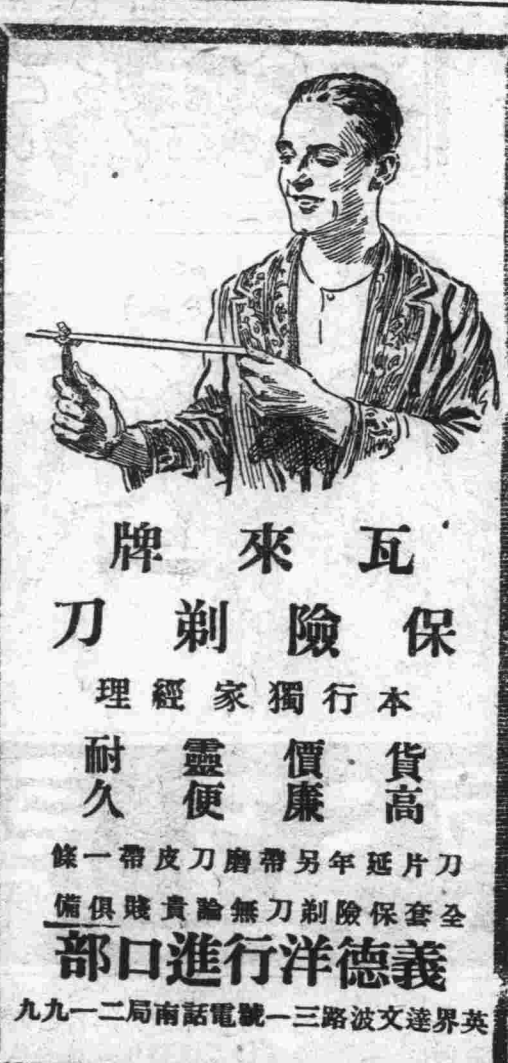 瓦來牌
保險剃刀
本行獨家經理
貨高 價廉 靈便 耐久
刀片延年另帶磨刀皮帶一條
全套保險剃刀無論貴賤俱備
義德洋行進口部
英界達文波路三一號電話南局二一九九